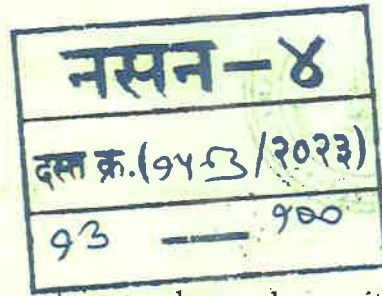 नसन-४
दस्त क्र.(१५५३/२०२३)
१३ — १००